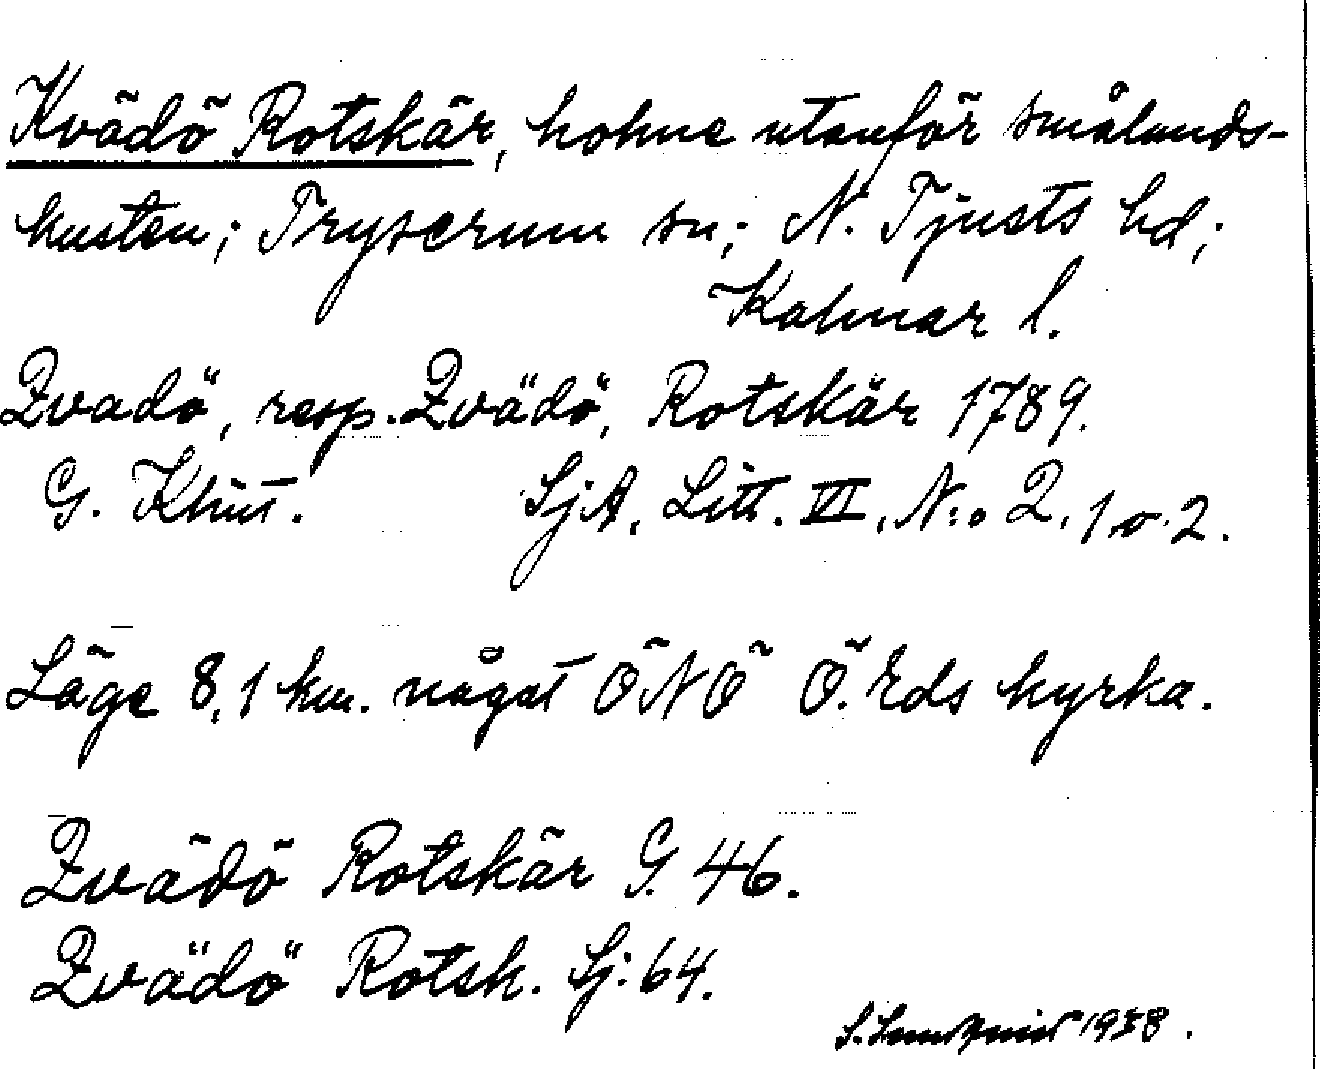 Kvädö Rotskär, holme utanför smålands-
kusten; Tryserum sn; N. Tjusts hd;
Kalmar l.
Qvadö, resp. Qvädö, Rotskär 1789.
G. Klint. SjA, Litt. VI, N:o 2, 1 o. 2.
Läge 8,1 km. något ÖNÖ Ö. Eds kyrka.
Qvädö Rotskär G. 46.
Qvädö Rotsk. Sj: 64.
1938.